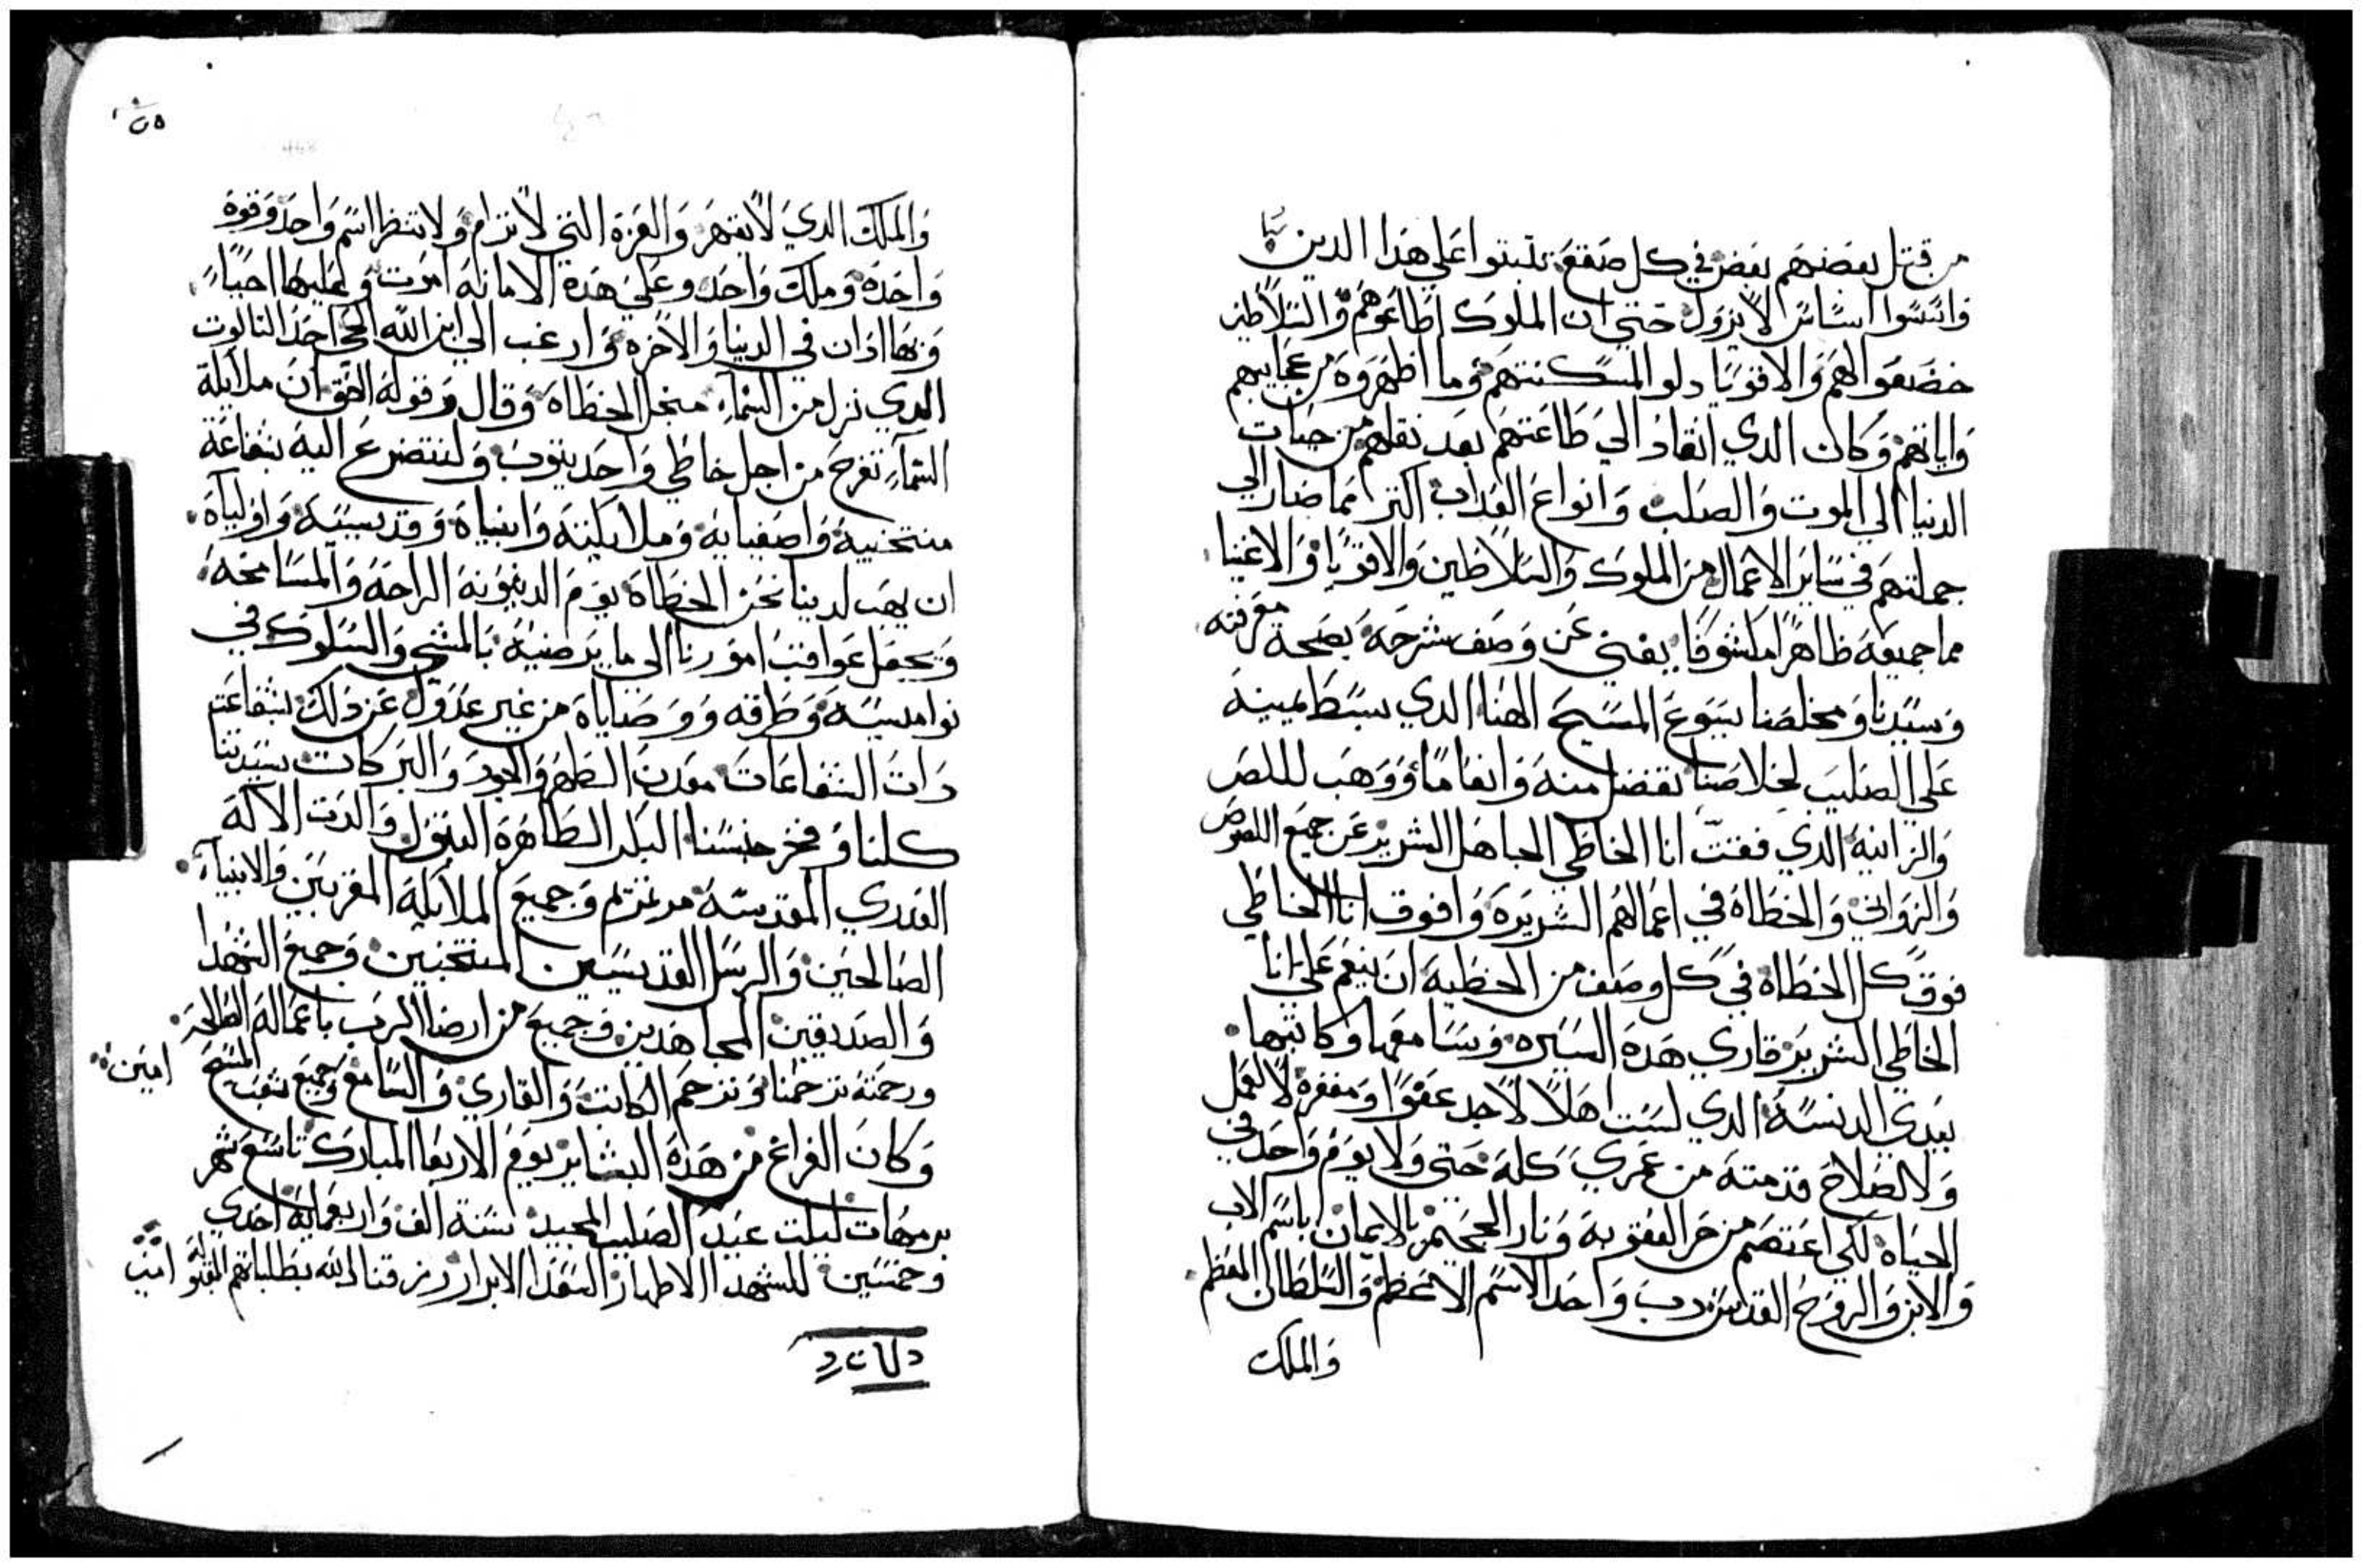 من قتل بعضهم بعض في كل صقع تلبتوا على هدا الدين
واتسوا اساس لا يزول حتى ان الملوك اطاعوهم والسلاطين
خضعوا لهم والاقويا دلوا لمسكنتهم وما اظهروه من عجايبهم
واياتهم وكان الدي انقاد الي طاعتهم بعد نقلهم من حيات
الدنيا الي الموت والصلب وانواع العداب اكتر مما صار الي
جملتهم في ساير الاعمال من الملوك والسلاطين والاقويا والاغنيا
مما جميعه ظاهرا مكشوفا يغني عن وصف شرحه بصحة معرفته
وسيدنا ومخلصنا يسوع المسيح الهنا الدي بسط يمينه
على الصليب لخلاصنا تفضل منه وانعاما ووهب لللص
والزانيه الدي فقت انا الخاطي الجاهل الشرير عن جميع اللصوص
والزواني والخطاه في اعمالهم الشريره وافوق انا الخاطي
فوق كل الخطاه في كل وصف من الخطيه ان ينعم علي انا
الخاطي الشرير قاري هده السيره وسامعها وكاتبها
بيدي الدنسه الدي لست اهلا لاجد عفوا ومغفره لا لعمل
ولا لصلاح قدمته من عمري كله حتى ولا يوم واحد في
الحياه لكي اعتصم من حر العقوبه ونار الجحيم بالايمان باسم الاب
والابن والروح القدس رب واحد الاسم الاعظم والسلطان المعظم
والملك
والملك الدي لا يقهر والعزه التي لا ترام ولا تنظر اسم واحد وقوه
واحده وملك واحد وعلى هده الامانه اموت وعليها احيا
وبها ادان في الدنيا والاخره وارغب الي ابن الله الحي احد التالوت
الدي نزل من السماء من اجل الخطاه وقال وقوله الحق ان ملايكة
السماء تفرح من اجل خاطي واحد يتوب ولنتضرع اليه بشفاعة
منتخبيه واصفيايه وملايكته وانبياه وقديسيه واوليآه
ان يهب لدينا نحن الخطاه يوم الدينونه الراحه والمسامحه
ويجعل عواقب امورنا الى ما يرضيه بالمشي والسلوك في
نواميسه وطرقه ووصاياه من غير عدول عن دلك بشفاعت
دات الشفاعات معدن الطهر والجود والبركات سيدتنا
كلنا وفخر جنسنا البكر الطاهره البتول والدت الاله
العدري المقدسه مرتمريم وجميع الملايكه المقربين والانبيآء
الصالحين والرسل القديسين المنتخبين وجميع الشهدا
والصديقين المجاهدين وجميع من ارضا الرب باعماله الصالحه
ورحمته ترحمنا وترحم الكاتب والقاري والسامع وجميع شعب المسيح امين
وكان الفراغ من هده البشاير يوم الاربعا المبارك تاسع شهر
برمهات ليلت عيد الصليب المجيد سنة الف واربعمايه احدي
وخمسين للشهدا الاطهار السعدا الابرار رزقنا الله بطلباتهم المقبوله امين